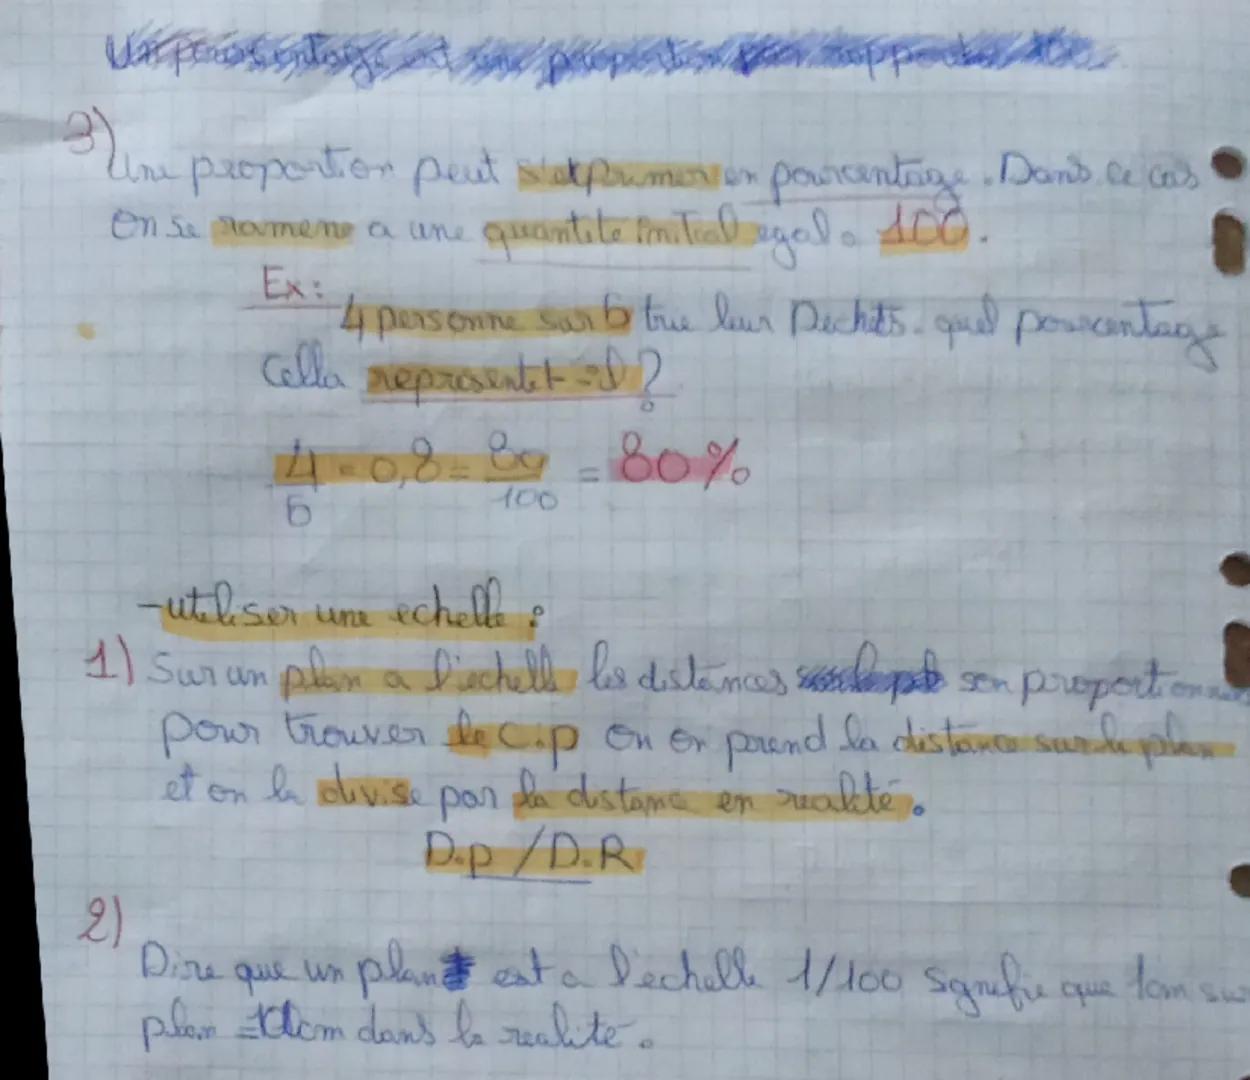 3)
Une proportion peut s'exprimer en pourcentage. Dans ce cas
on se ramene a une quantite initial egal a 100.
Ex:
4 personne sur 5 trie leur Dechets. quel pourcentage
Cella representet-il?
4/5 = 0,8 = 80/100 = 80%
-utiliser une echelle :
1) Sur un plan a l'echelle les distances son proportionn
pour trouver le C.p on on prend la distance sur le plan
et on la divise par la distance en realité.
D.p / D.R
2)
Dire que un plan est a l'echelle 1/100 signifie que 1cm su
plan = cm dans la realité.